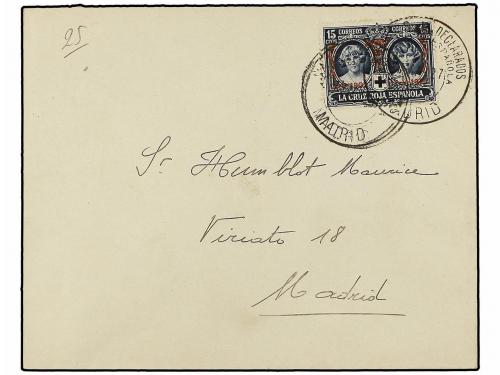 25
15 CORREOS CORREOS 15
LA CRUZ ROJA ESPAÑOLA
DECLARADOS
ESPAÑOLA
MADRID
Sr Humblot Maurice
Viriato 18
Madrid